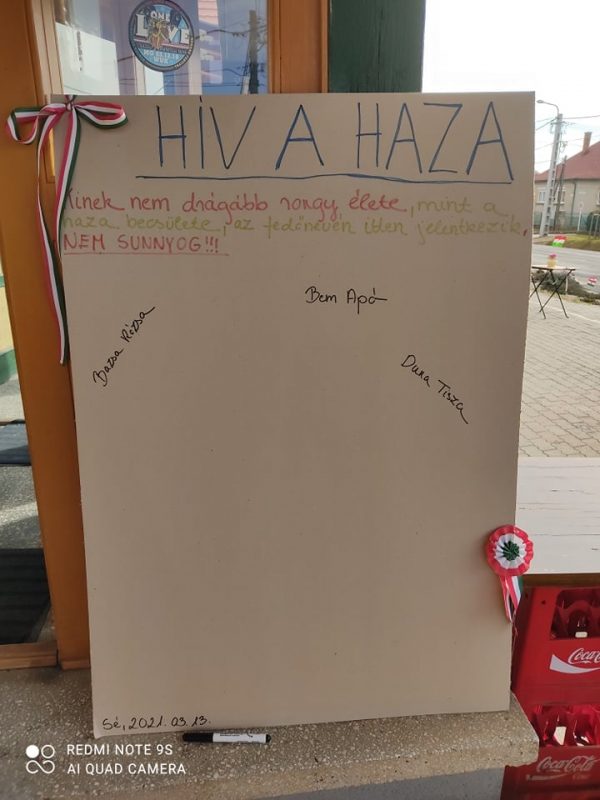 ONE
LOVE
HÍV A HAZA
Kinek nem drágább rongy élete, mint a
haza becsülete, az fedőnevén itten jelentkezük.
NEM SUNNYOG!!!
Bem Apó
Bazsa Rózsa
Duna Tisza
Sé, 2021.03.13.
Coca-Cola
Coca-Cola
REDMI NOTE 9S
AI QUAD CAMERA